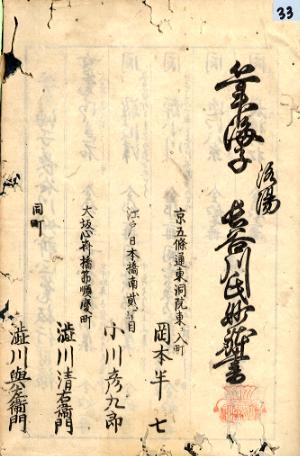 33
洛陽
長谷川氏妙躰書
京五條通東洞院東入町
岡本半七
江戸日本橋南貳町目
小川彦九郎
大坂心斎橋筋順慶町
澁川清右衛門
同町
澁川與左衛門